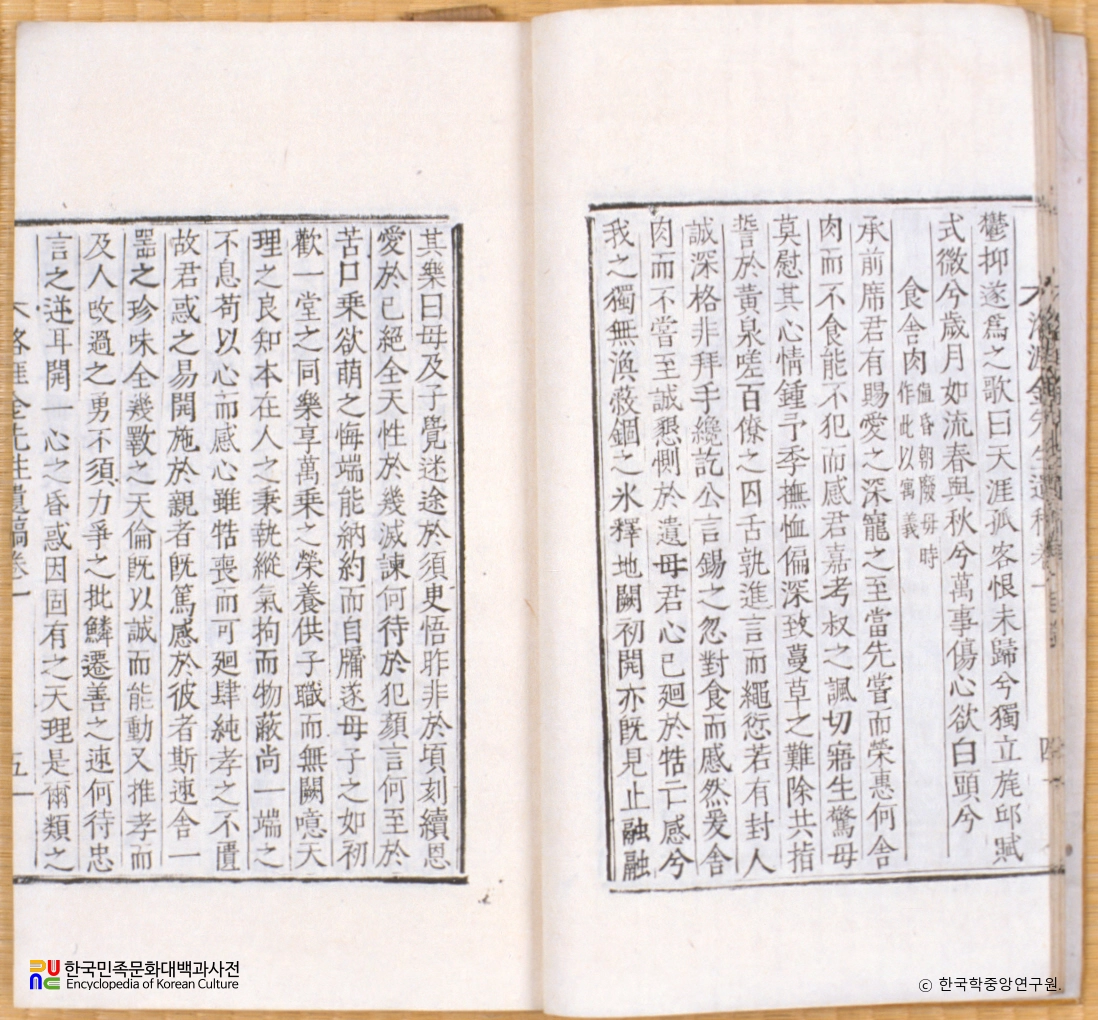 鬱抑遂爲之歌曰天涯孤客恨未歸兮獨立旄邱賦
式微兮歲月如流春與秋兮萬事傷心欲白頭兮
食舍肉 值昏朝廢母時
作此以寓義
承前席君有賜愛之深寵之至當先嘗而榮惠何舍
肉而不食能不犯而感君嘉考叔之諷切寤生驚母
莫慰其心情鍾予季撫恤偏深致蔓草之難除共指
誓於黃泉嗟百僚之囚舌孰進言而繩愆若有封人
誠深格非拜手纔訖公言錫之忽對食而感然爰舍
肉而不嘗至誠懇惻於遺母君心已廻於牿亡感兮
我之獨無渙蔽錮之氷釋地闕初開亦旣見止融融
其樂曰母及子覺迷途於須臾悟昨非於頃刻續恩
愛於已絕全天性於幾滅諫何待於犯顏言何至於
苦口乘欲萌之悔端能納約而自牖遂母子之如初
歡一堂之同樂享萬乘之榮養供子職而無闕噫天
理之良知本在人之秉執縱氣拘而物蔽尚一端之
不息苟以心而感心雖牿喪而可廻肆純孝之不匱
故君惑之易開施於親者旣篤感於彼者斯速舍一
器之珍味全幾斁之天倫旣以誠而能動又推孝而
及人改過之勇不須力爭之批鱗遷善之速何待忠
言之逆耳開一心之昏惑因固有之天理是爾類之
五
한국민족문화대백과사전
Encyclopedia of Korean Culture
ⓒ 한국학중앙연구원.